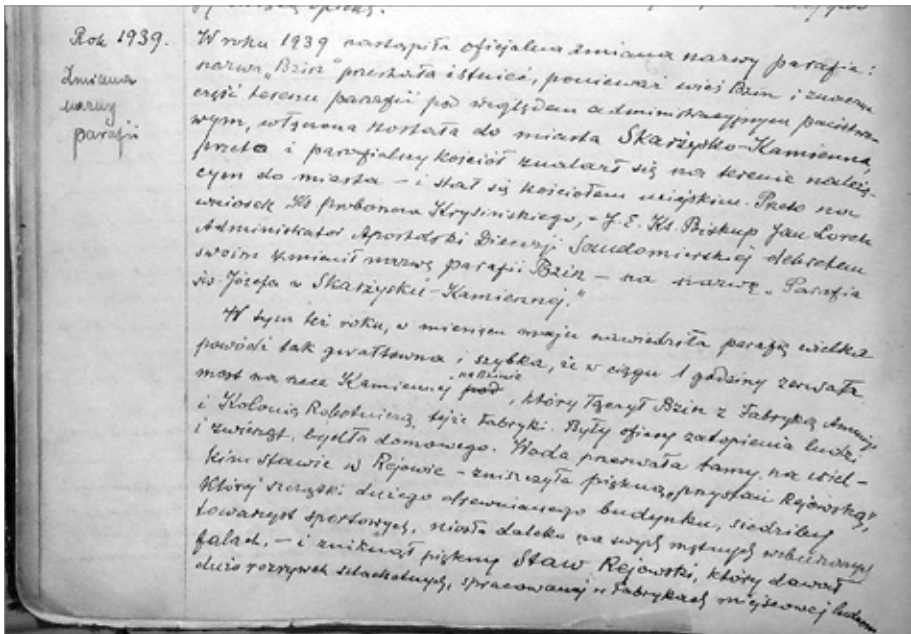 Rok 1939.
Zmiana
nazwy
parafii
W roku 1939 nastąpiła oficjalna zmiana nazwy parafii:
nazwa „Bzin" przestała istnieć, ponieważ wieś Bzin i znaczna
część terenu parafii pod względem administracyjnym państwo-
wym, włączona została do miasta Skarżysko-Kamienna,
przeto i parafialny kościół znalazł się na terenie należą-
cym do miasta – i stał się kościołem miejskim. Przeto na
wniosek Ks. proboszcza Krysińskiego, – J. E. Ks. Biskup Jan Lorek
Administrator Apostolski Diecezji Sandomierskiej dekretem
swoim zmienił nazwę parafii Bzin – na nazwę „Parafia
św. Józefa w Skarżysku-Kamiennej."
W tym też roku, w miesiącu maju nawiedziła parafię wielka
powódź tak gwałtowna i szybka, że w ciągu 1 godziny zerwała
most na rzece Kamiennej, który łączył Bzin z Fabryką Amunicji
i Kolonią Robotniczą, tejże fabryki. Były ofiary zatopienia ludzi
i zwierząt, bydła domowego. Woda przerwała tamy na wiel-
kim stawie w Rejowie – zniszczyła piękną „przystań Rejowską",
której szczątki dużego drewnianego budynku, siedziby
towarzystw sportowych, niosła daleko na swych mętnych wzburzonych
falach. – i zniknął piękny Staw Rejowski, który dawał
dużo rozrywek szlachetnych, spracowanej w Fabrykach miejscowej ludności